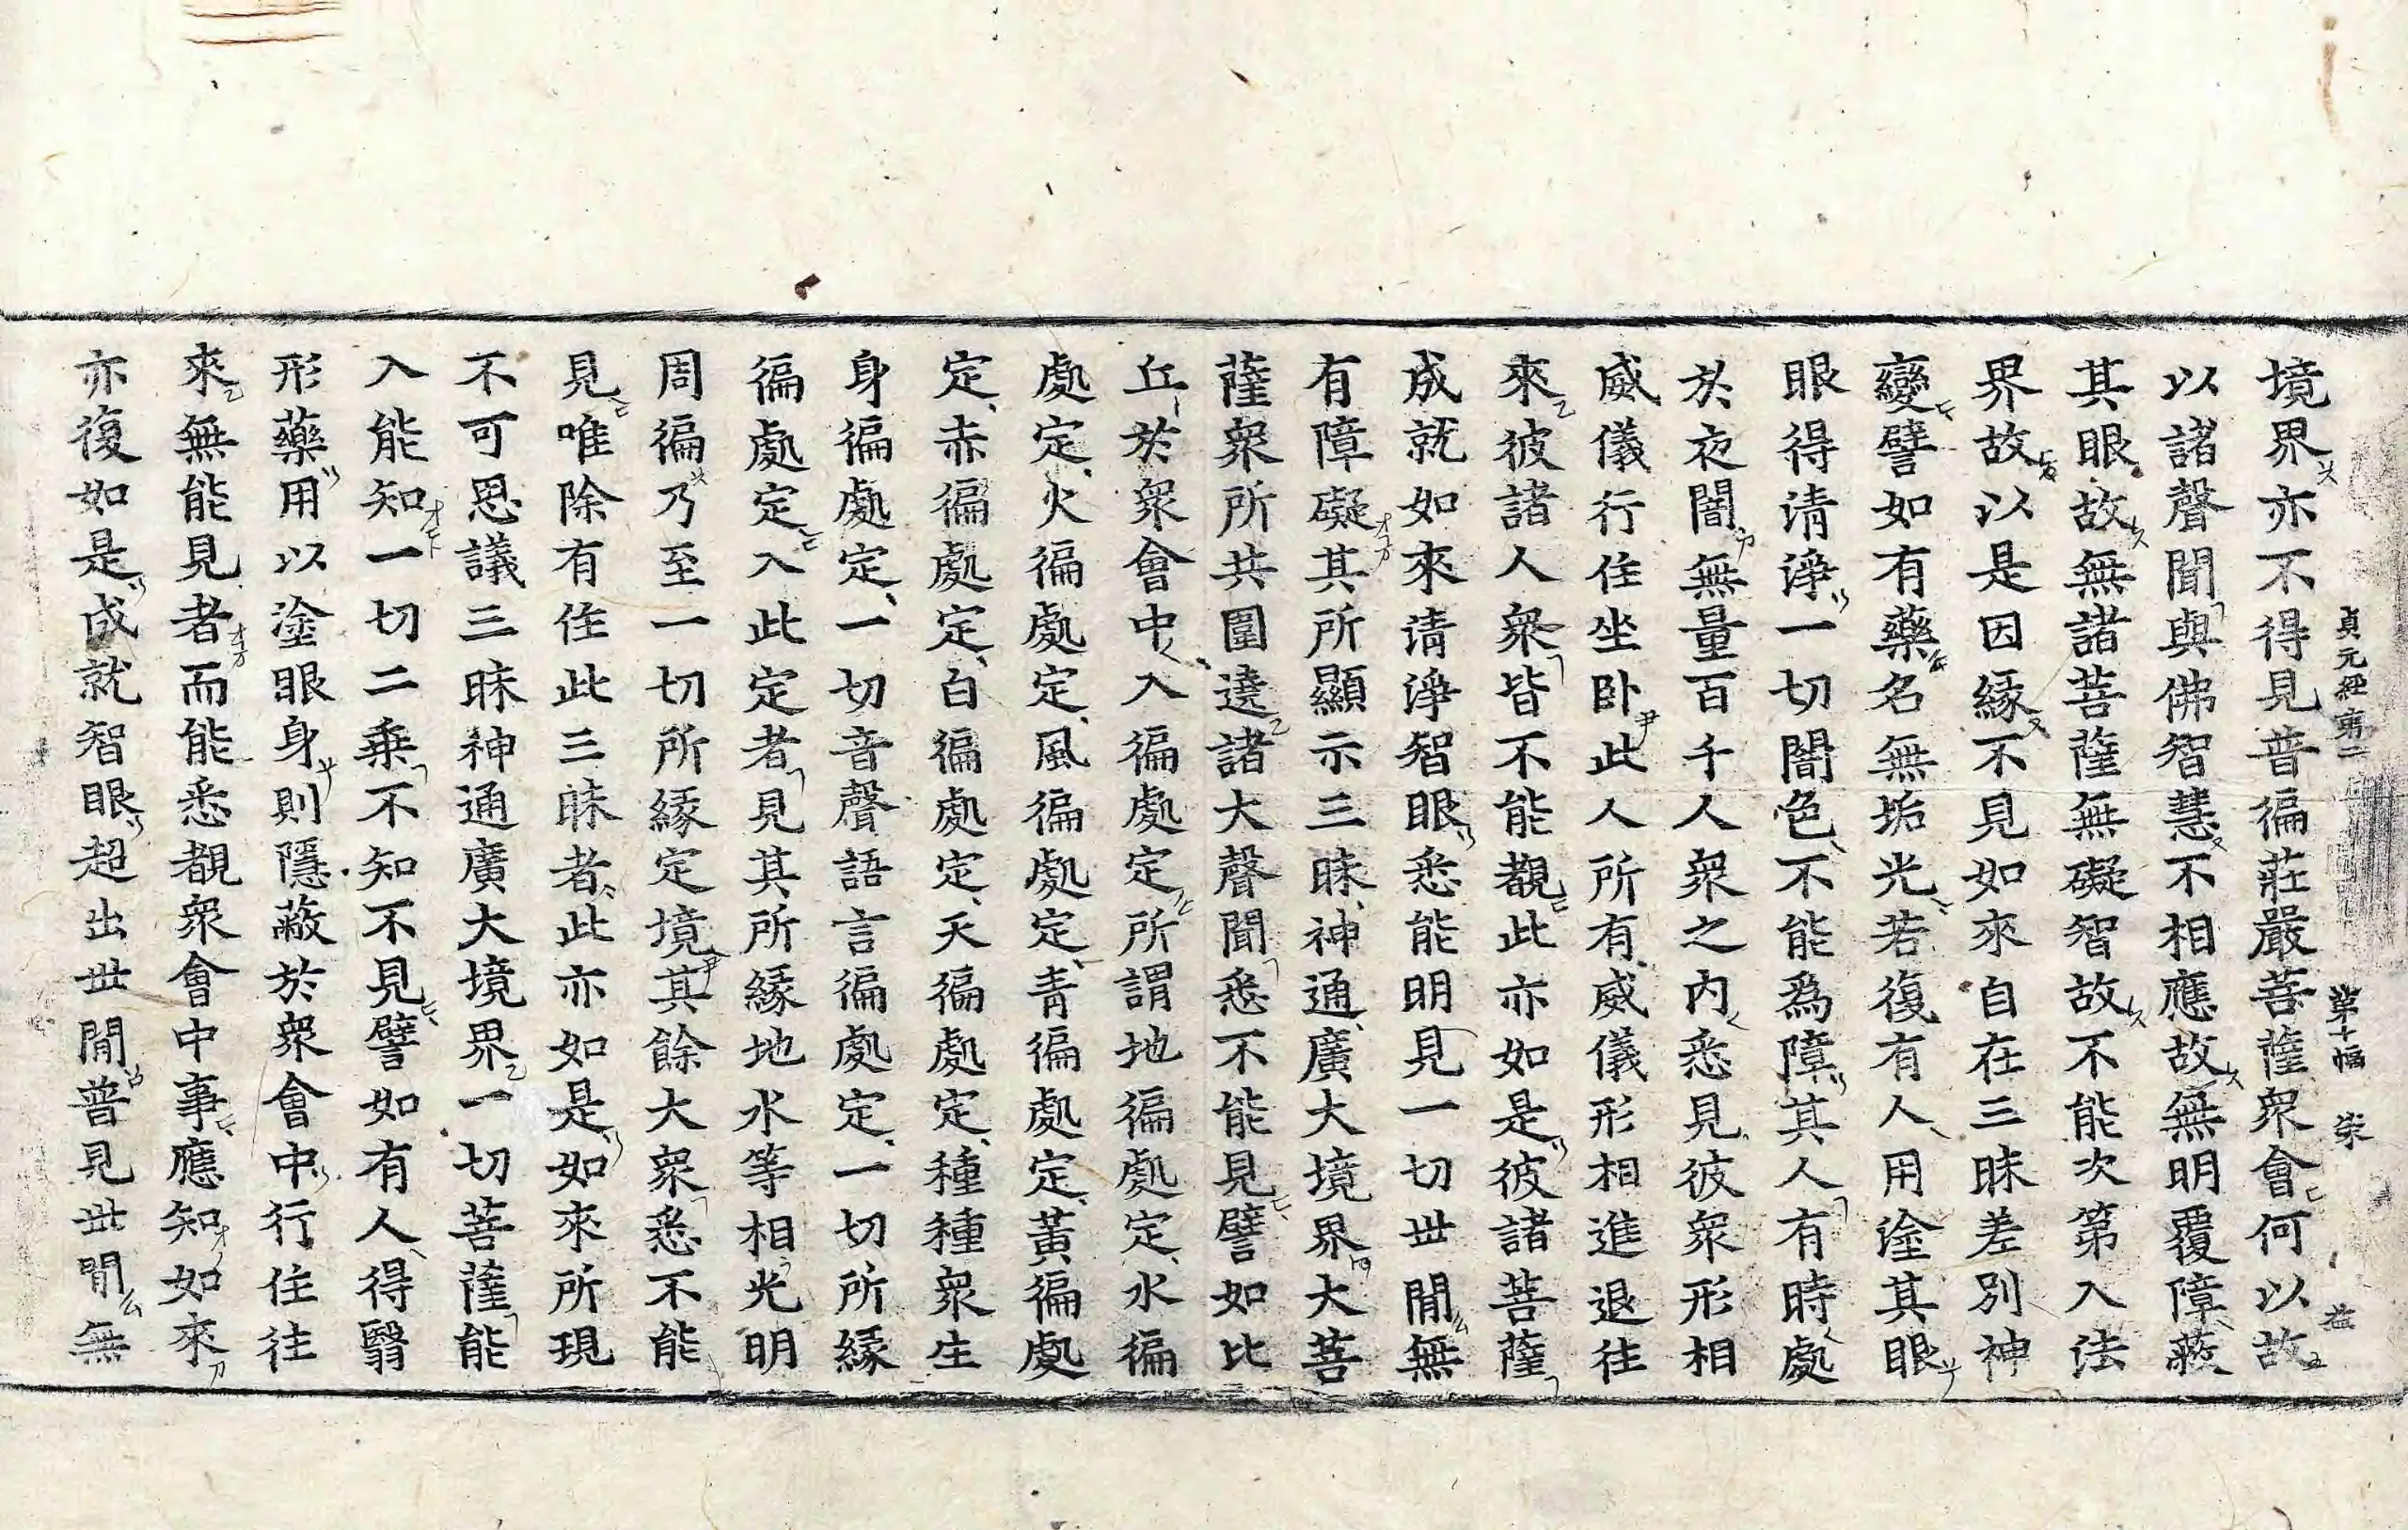 貞元經第二 第十幅 柒
境界亦不得見普徧莊嚴菩薩衆會何以故
以諸聲聞與佛智慧不相應故無明覆障蔽
其眼故無諸菩薩無礙智故不能次第入法
界故以是因緣不見如來自在三昧差別神
變譬如有藥名無垢光若復有人用塗其眼
眼得清淨一切闇色不能爲障其人有時處
於夜闇無量百千人衆之內悉見彼衆形相
威儀行住坐卧此人所有威儀形相進退往
來彼諸人衆皆不能覩此亦如是彼諸菩薩
成就如來清淨智眼悉能明見一切世間無
有障礙其所顯示三昧神通廣大境界大菩
薩衆所共圍遶諸大聲聞悉不能見譬如比
丘於衆會中入徧處定所謂地徧處定水徧
處定火徧處定風徧處定青徧處定黃徧處
定赤徧處定白徧處定天徧處定種種衆生
身徧處定一切音聲語言徧處定一切所緣
徧處定入此定者見其所緣地水等相光明
周徧乃至一切所緣定境其餘大衆悉不能
見唯除有住此三昧者此亦如是如來所現
不可思議三昧神通廣大境界一切菩薩能
入能知一切二乘不知不見譬如有人得翳
形藥用以塗眼身則隱蔽於衆會中行住往
來無能見者而能悉覩衆會中事應知如來
亦復如是成就智眼超出世間普見世間無